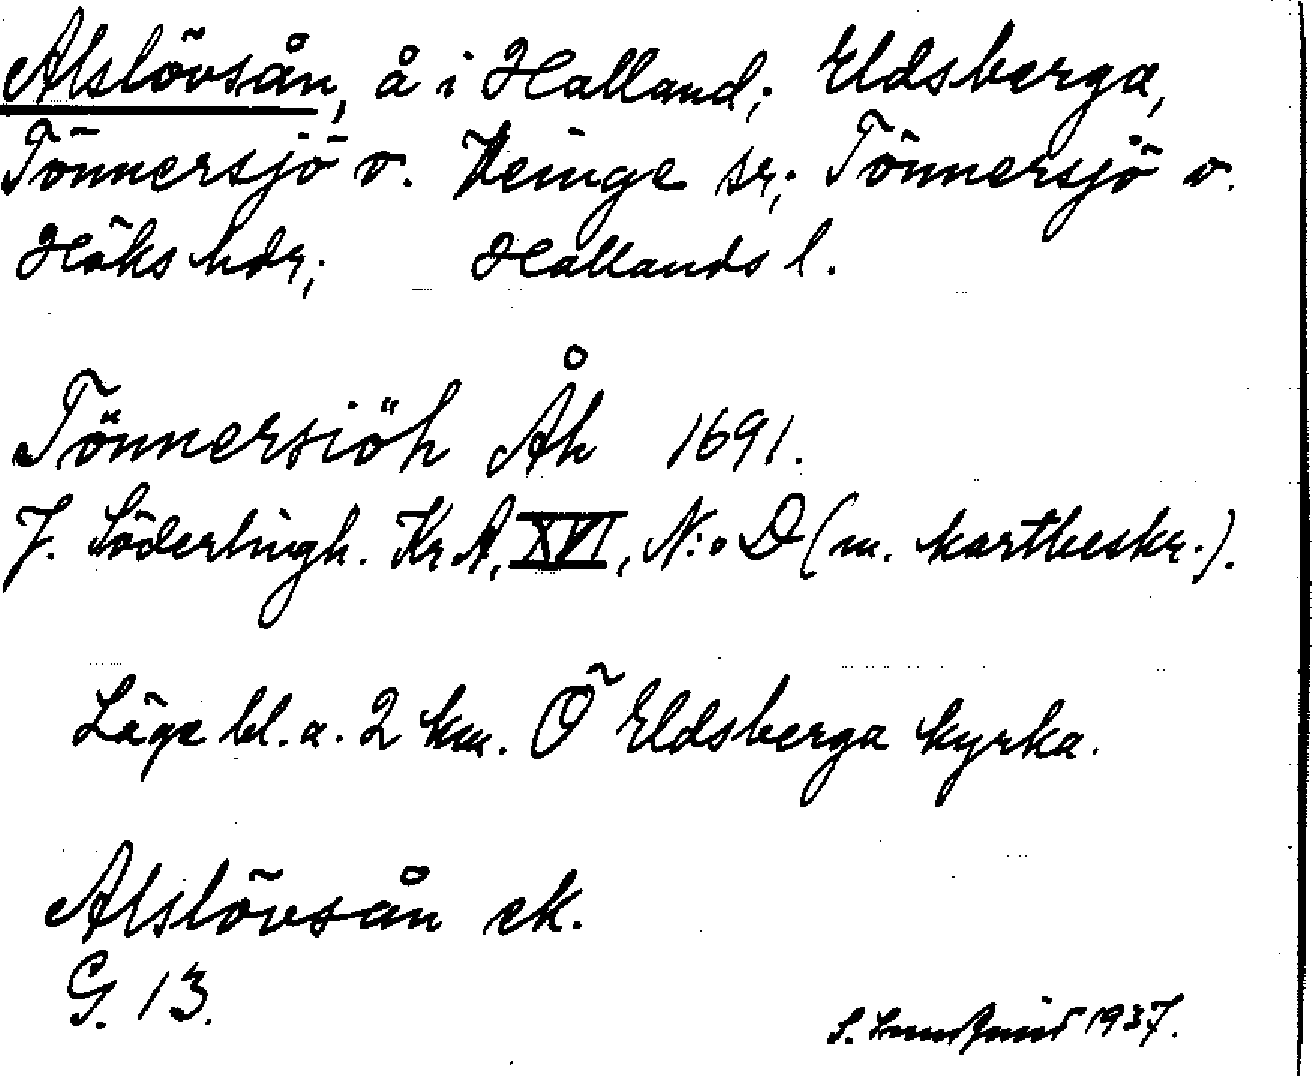 Alslövsån, å i Halland; Eldsberga,
Tönnersjö o. Veinge sr; Tönnersjö o.
Höks hdr; Hallands l.
Tönnersiöh Åh 1691.
J. Söderlingh. Kr A, XVI, N:o D (m. kartbeskr.).
Läge bl. a. 2 km. Ö Eldsberga kyrka.
Alslövsån ek.
G. 13.
S. 1937.